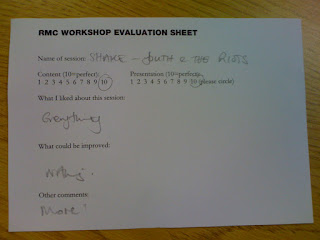 RMC WORKSHOP EVALUATION SHEET
Name of session: SHAKE – YOUTH & THE RIOTS
Content (10=perfect) Presentation (10=perfect)
1 2 3 4 5 6 7 8 9 10 1 2 3 4 5 6 7 8 9 10 (please circle)
What I liked about this session:
Everything
What could be improved:
nothing.
Other comments:
More!